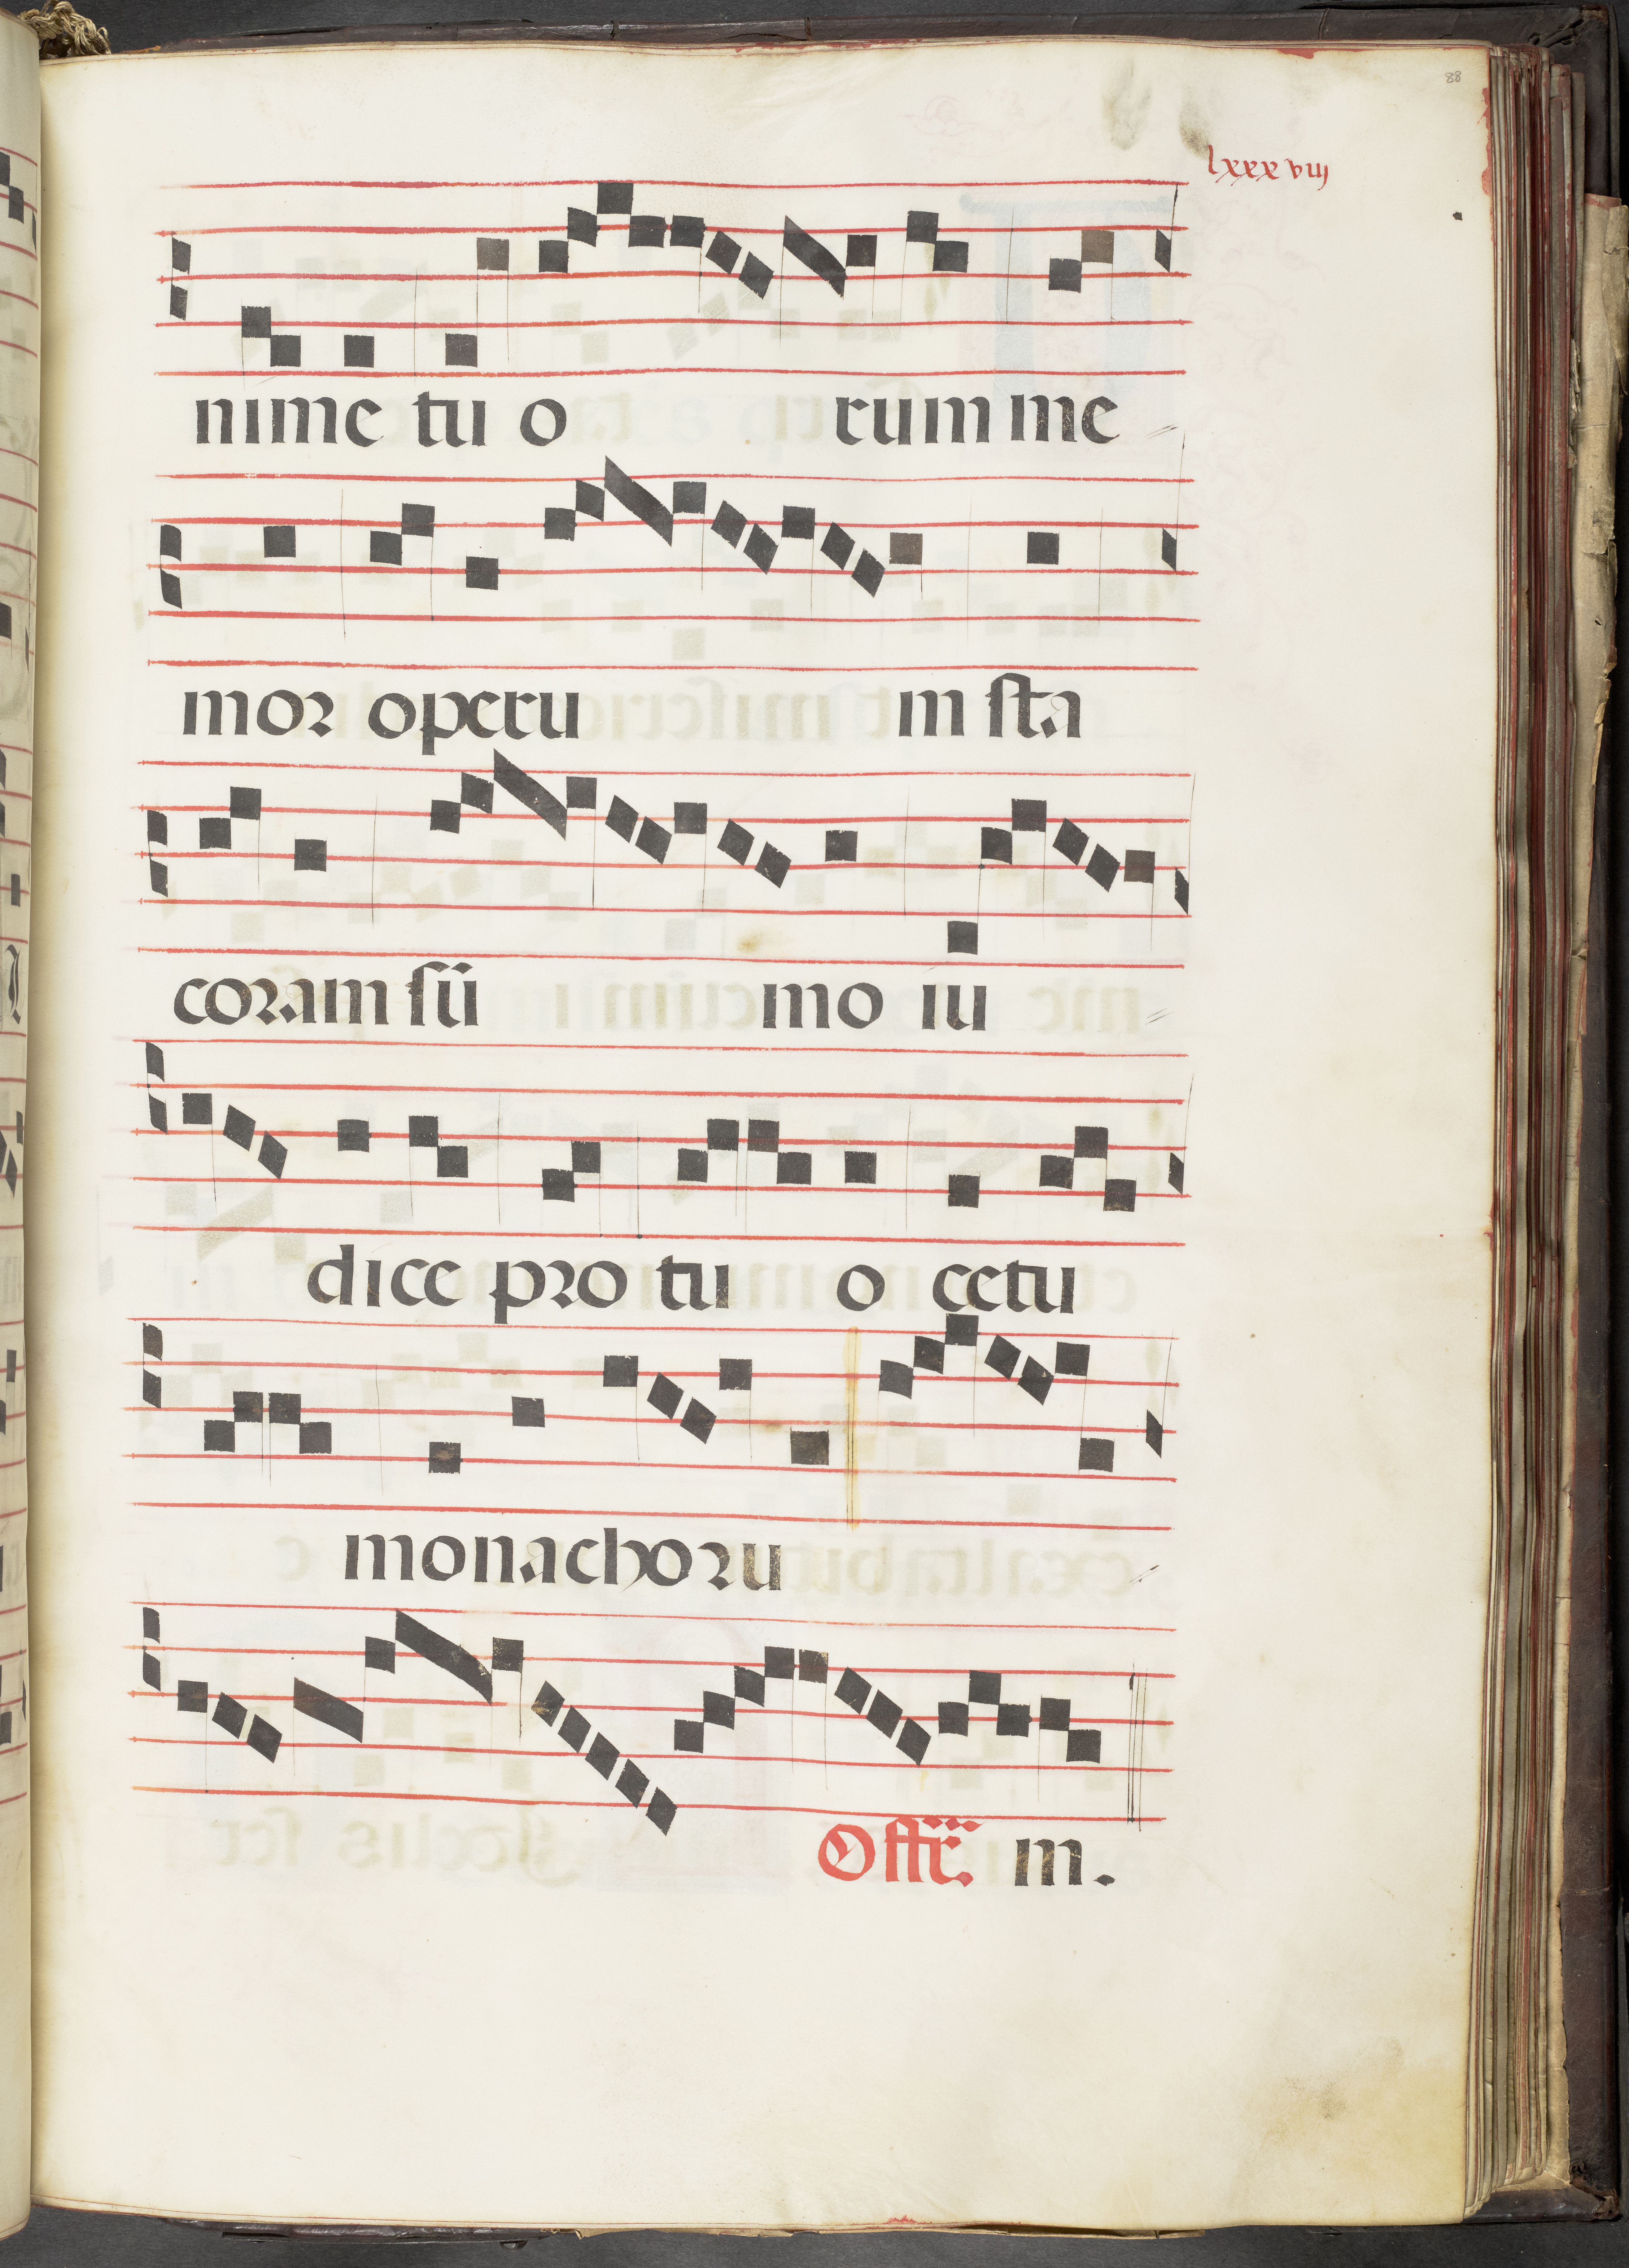 88
lxxxviij
nime tu o rum me
mor operu m sta
coram sū mo iu
dice pro tu o cetu
monachoru
Offr. m.